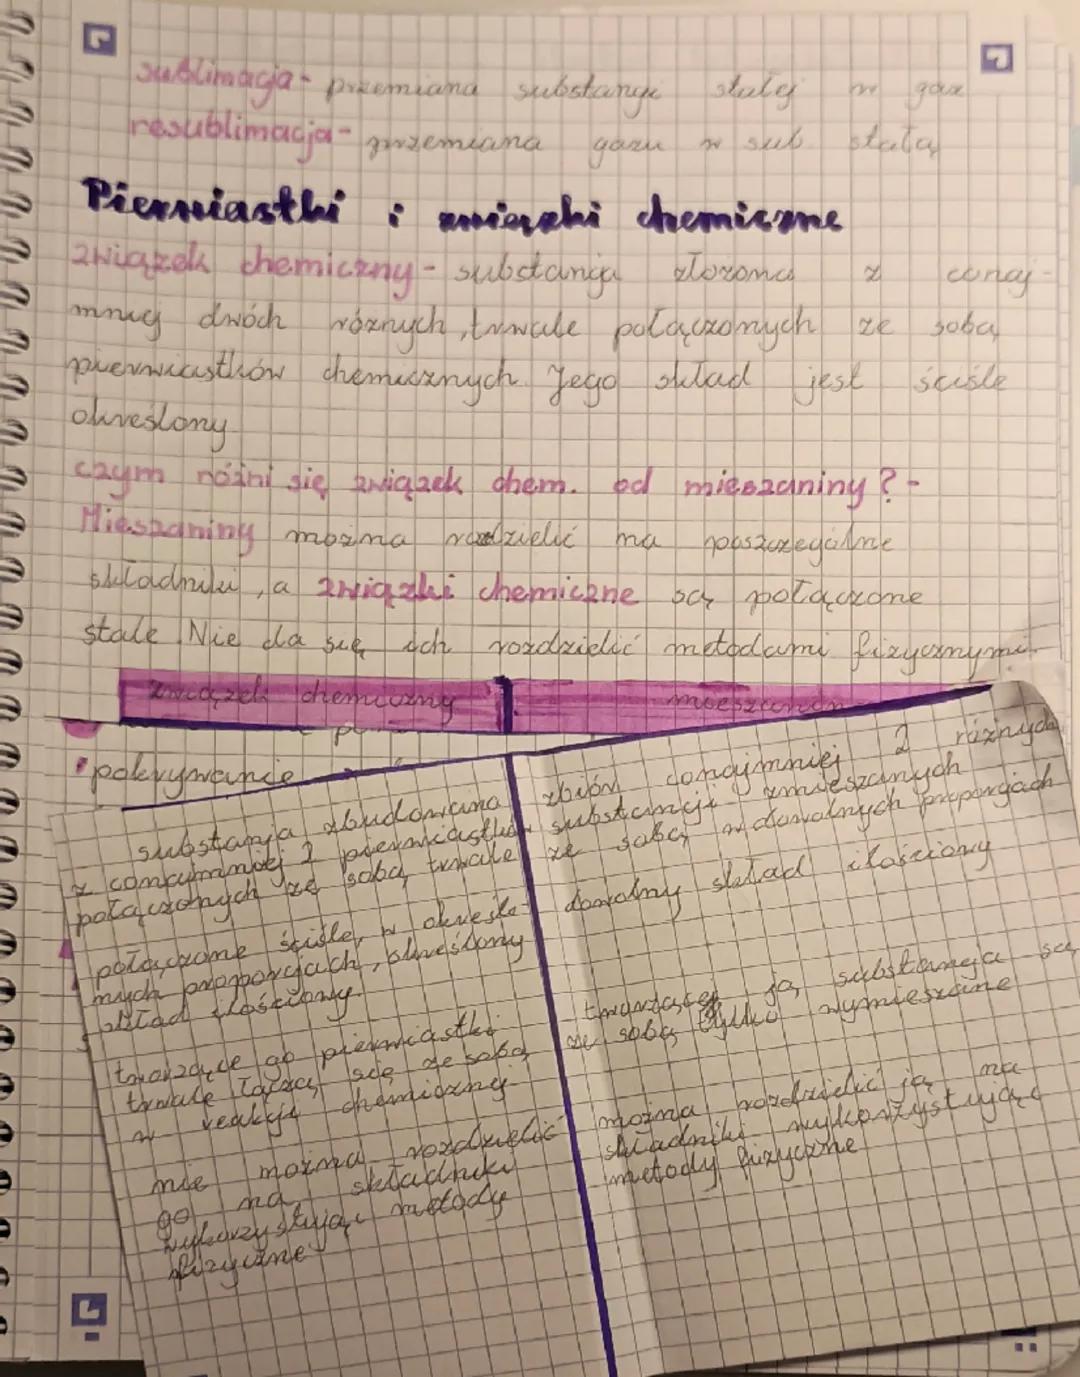 sublimacja - przemiana substancji stałej w gaz
resublimacja - przemiana gazu w sub. stałą
Pierwiastki i związki chemiczne
związek chemiczny - substancja złożona z conaj-
mniej dwóch różnych, trwale połączonych ze sobą
pierwiastków chemicznych. Jego skład jest ściśle
określony
czym różni się związek chem. od mieszaniny? -
Mieszaniny można rozdzielić na poszczególne
składniki, a związki chemiczne są połączone
stale. Nie da się ich rozdzielić metodami fizycznymi.
związek chemiczny
mieszanina
pokrywanie
substancja zbudowana
z conajmniej 2 pierwiastków
połączonych ze sobą trwale
połączone ściśle, w określo-
nych proporcjach, określony
skład ilościowy.
tworzące go pierwiastki
trwale łączą się ze sobą
w reakcji chemicznej.
nie można rozdzielić
go na składniki
wykorzystując metody
fizyczne
zbiór conajmniej 2 różnych
substancji zmieszanych
ze sobą w dowolnych proporcjach
dowolny skład ilościowy
tworzącej ją substancja są
ze sobą tylko wymieszane
można rozdzielić ją na
składniki wykorzystując
metody fizyczne